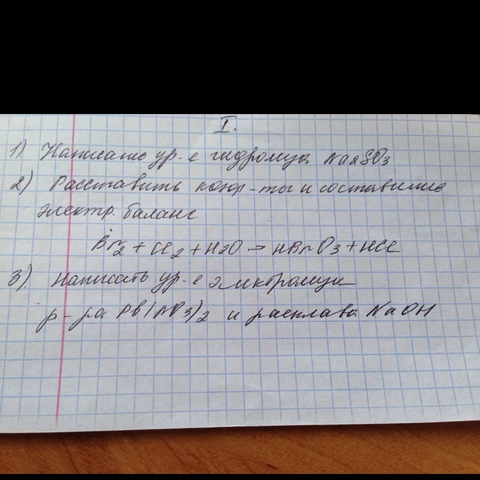 I.
1) Написать ур-е гидролиза Na2SO3
2) Расставить коэф-ты и составить
электр. баланс
Br2 + Cl2 + H2O → HBrO3 + HCl
3) Написать ур-е электролиза
р-ра Pb(NO3)2 и расплава NaOH